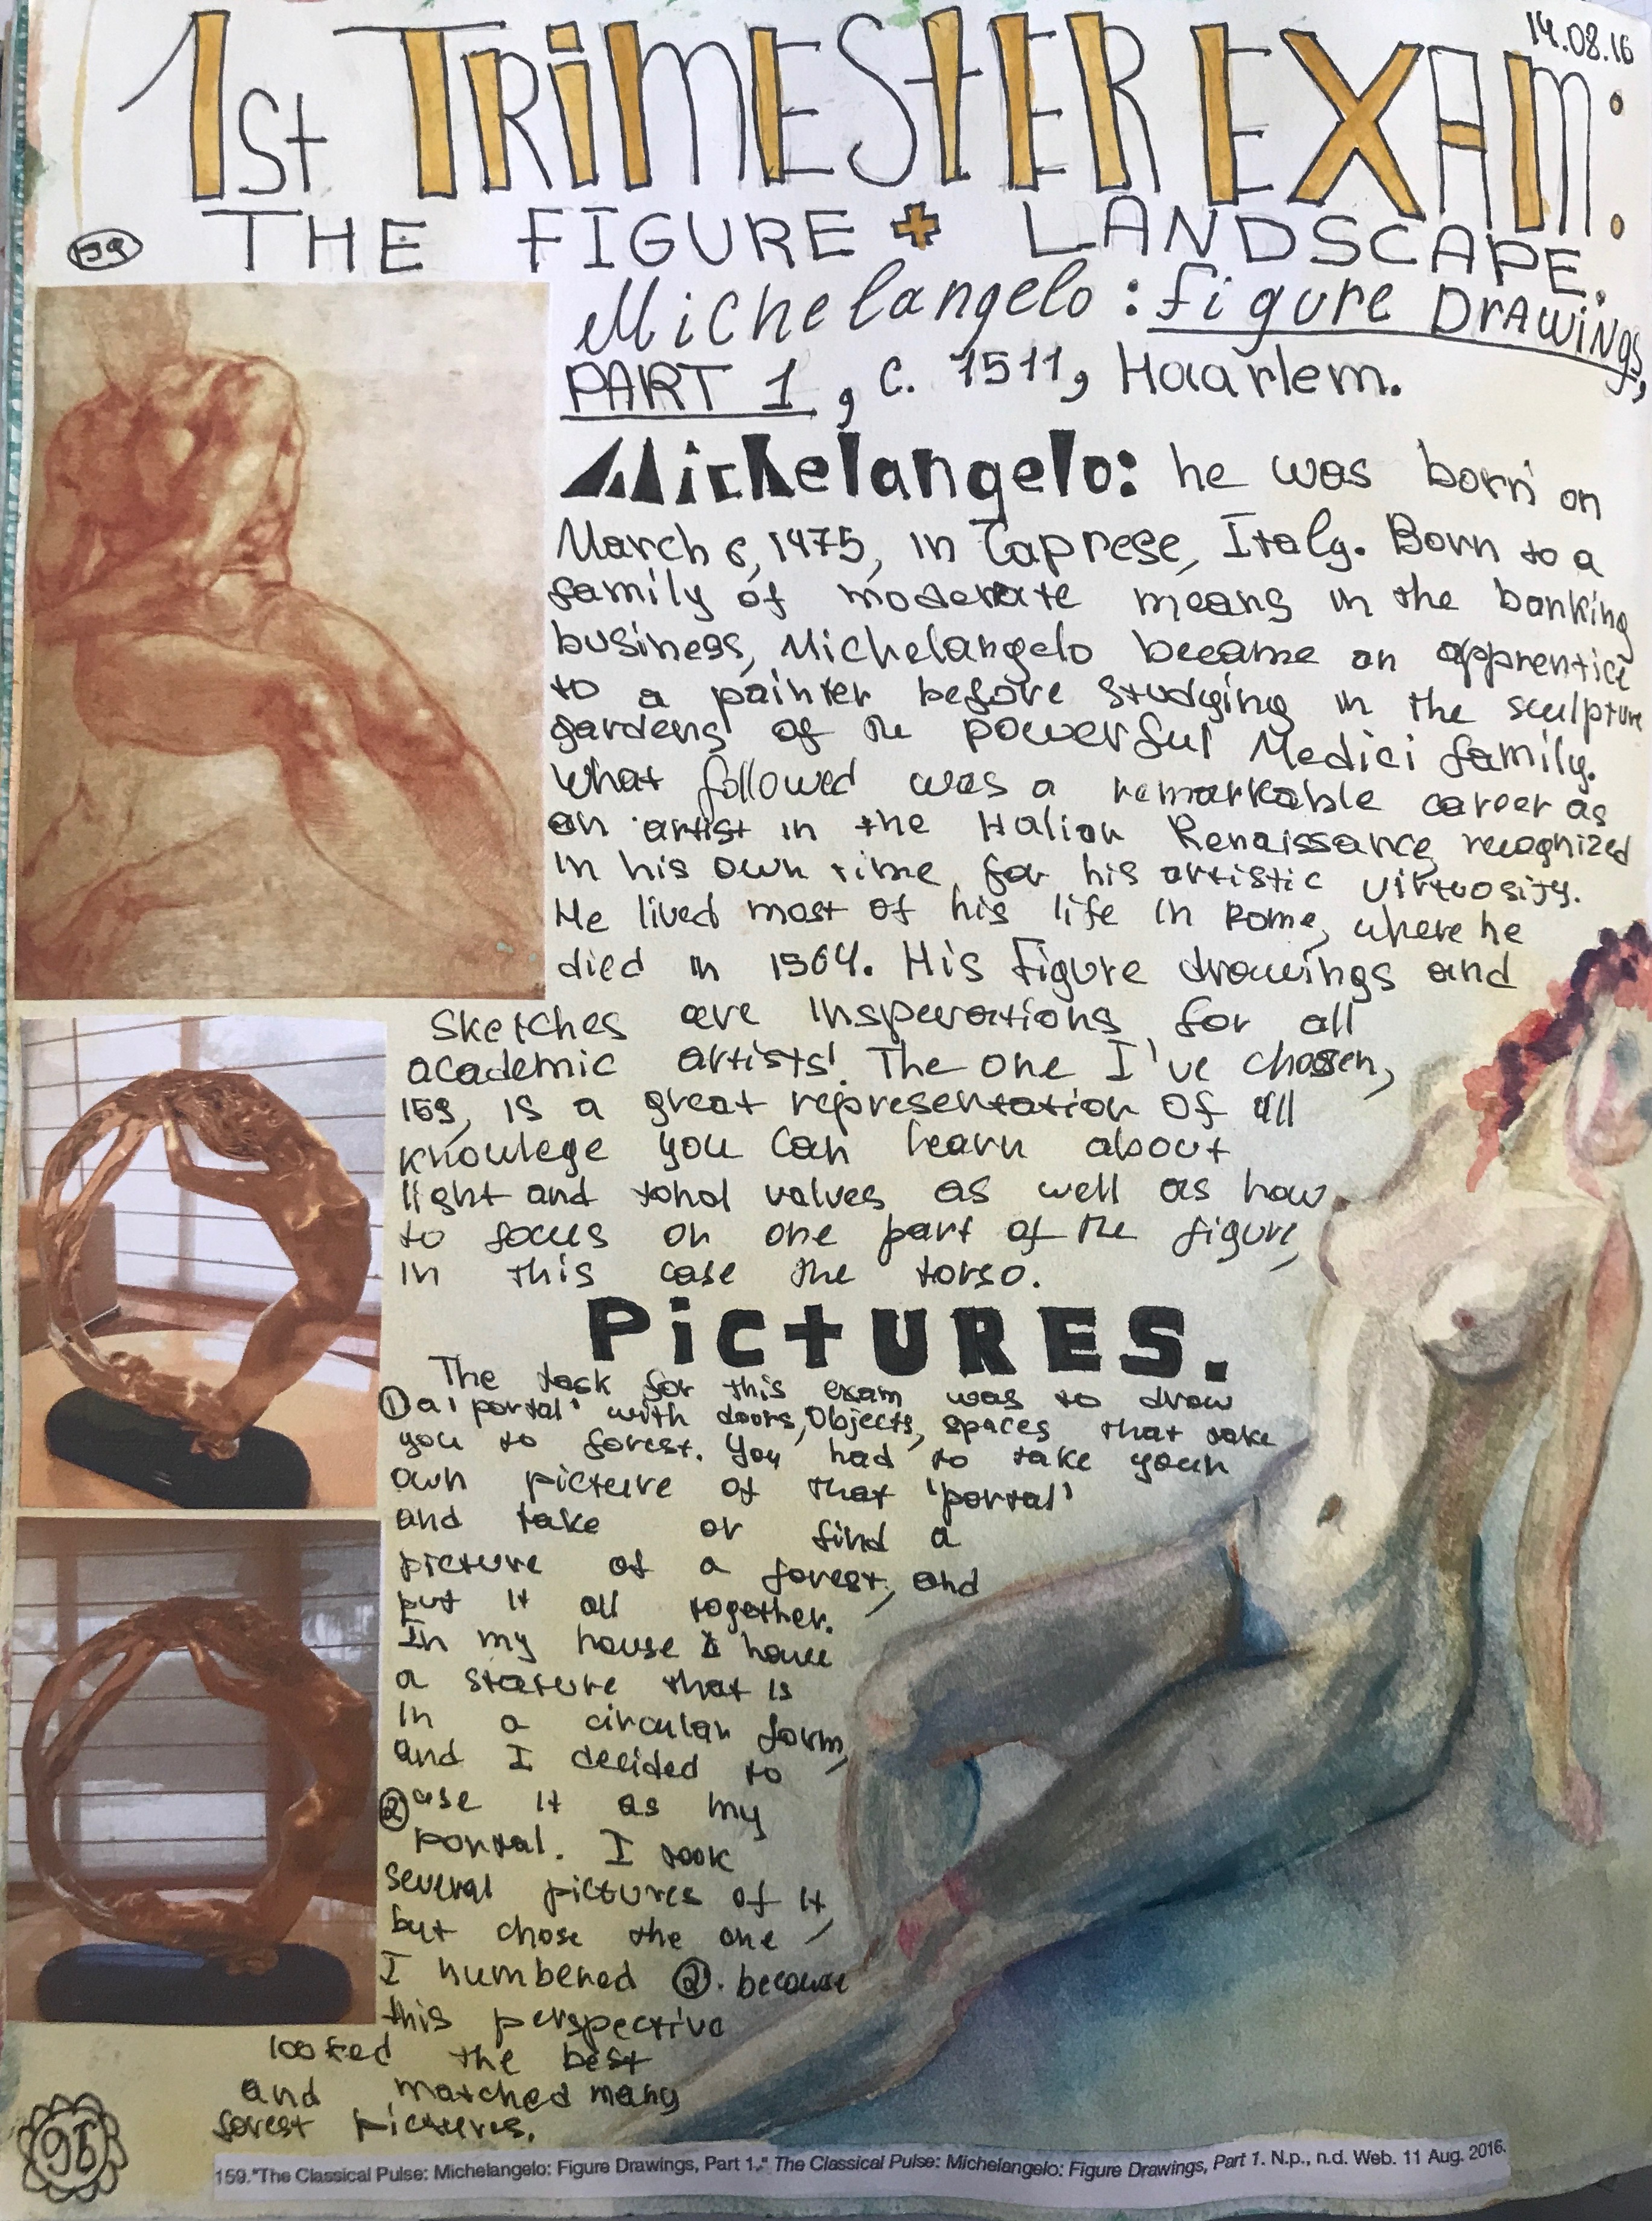 14.08.16
1st TRiMESTER EXAM:
THE FIGURE + LANDSCAPE.
Michelangelo: Figure DrAwings,
PART 1, c. 1511, Haarlem.
Michelangelo: he was born on
March 6, 1475, in Caprese, Italy. Born to a
family of moderate means in the banking
business, Michelangelo became an apprentice
to a painter before studying in the sculpture
gardens of the powerful Medici family.
What followed was a remarkable career as
an artist in the Italian Renaissance, recognized
in his own time for his artistic virtuosity.
He lived most of his life in Rome, where he
died in 1564. His figure drawings and
sketches are insperations for all
academic artists! The one I've chosen,
159, is a great representation of all
knowlege you can learn about
light and tonal values as well as how
to focus on one part of the figure,
in this case the torso.
PictURES.
The task for this exam was to draw
① a 'portal' with doors, objects, spaces that take
you to forest. You had to take your
own picture of that 'portal'
and take or find a
picture of a forest, and
put it all together.
In my house I have
a stature that is
in a circular form,
and I decided to
② use it as my
portal. I took
several pictures of it,
but chose the one
I numbered ②. because
this perspective
looked the best
and matched many
forest pictures.
159."The Classical Pulse: Michelangelo: Figure Drawings, Part 1." The Classical Pulse: Michelangelo: Figure Drawings, Part 1. N.p., n.d. Web. 11 Aug. 2016.